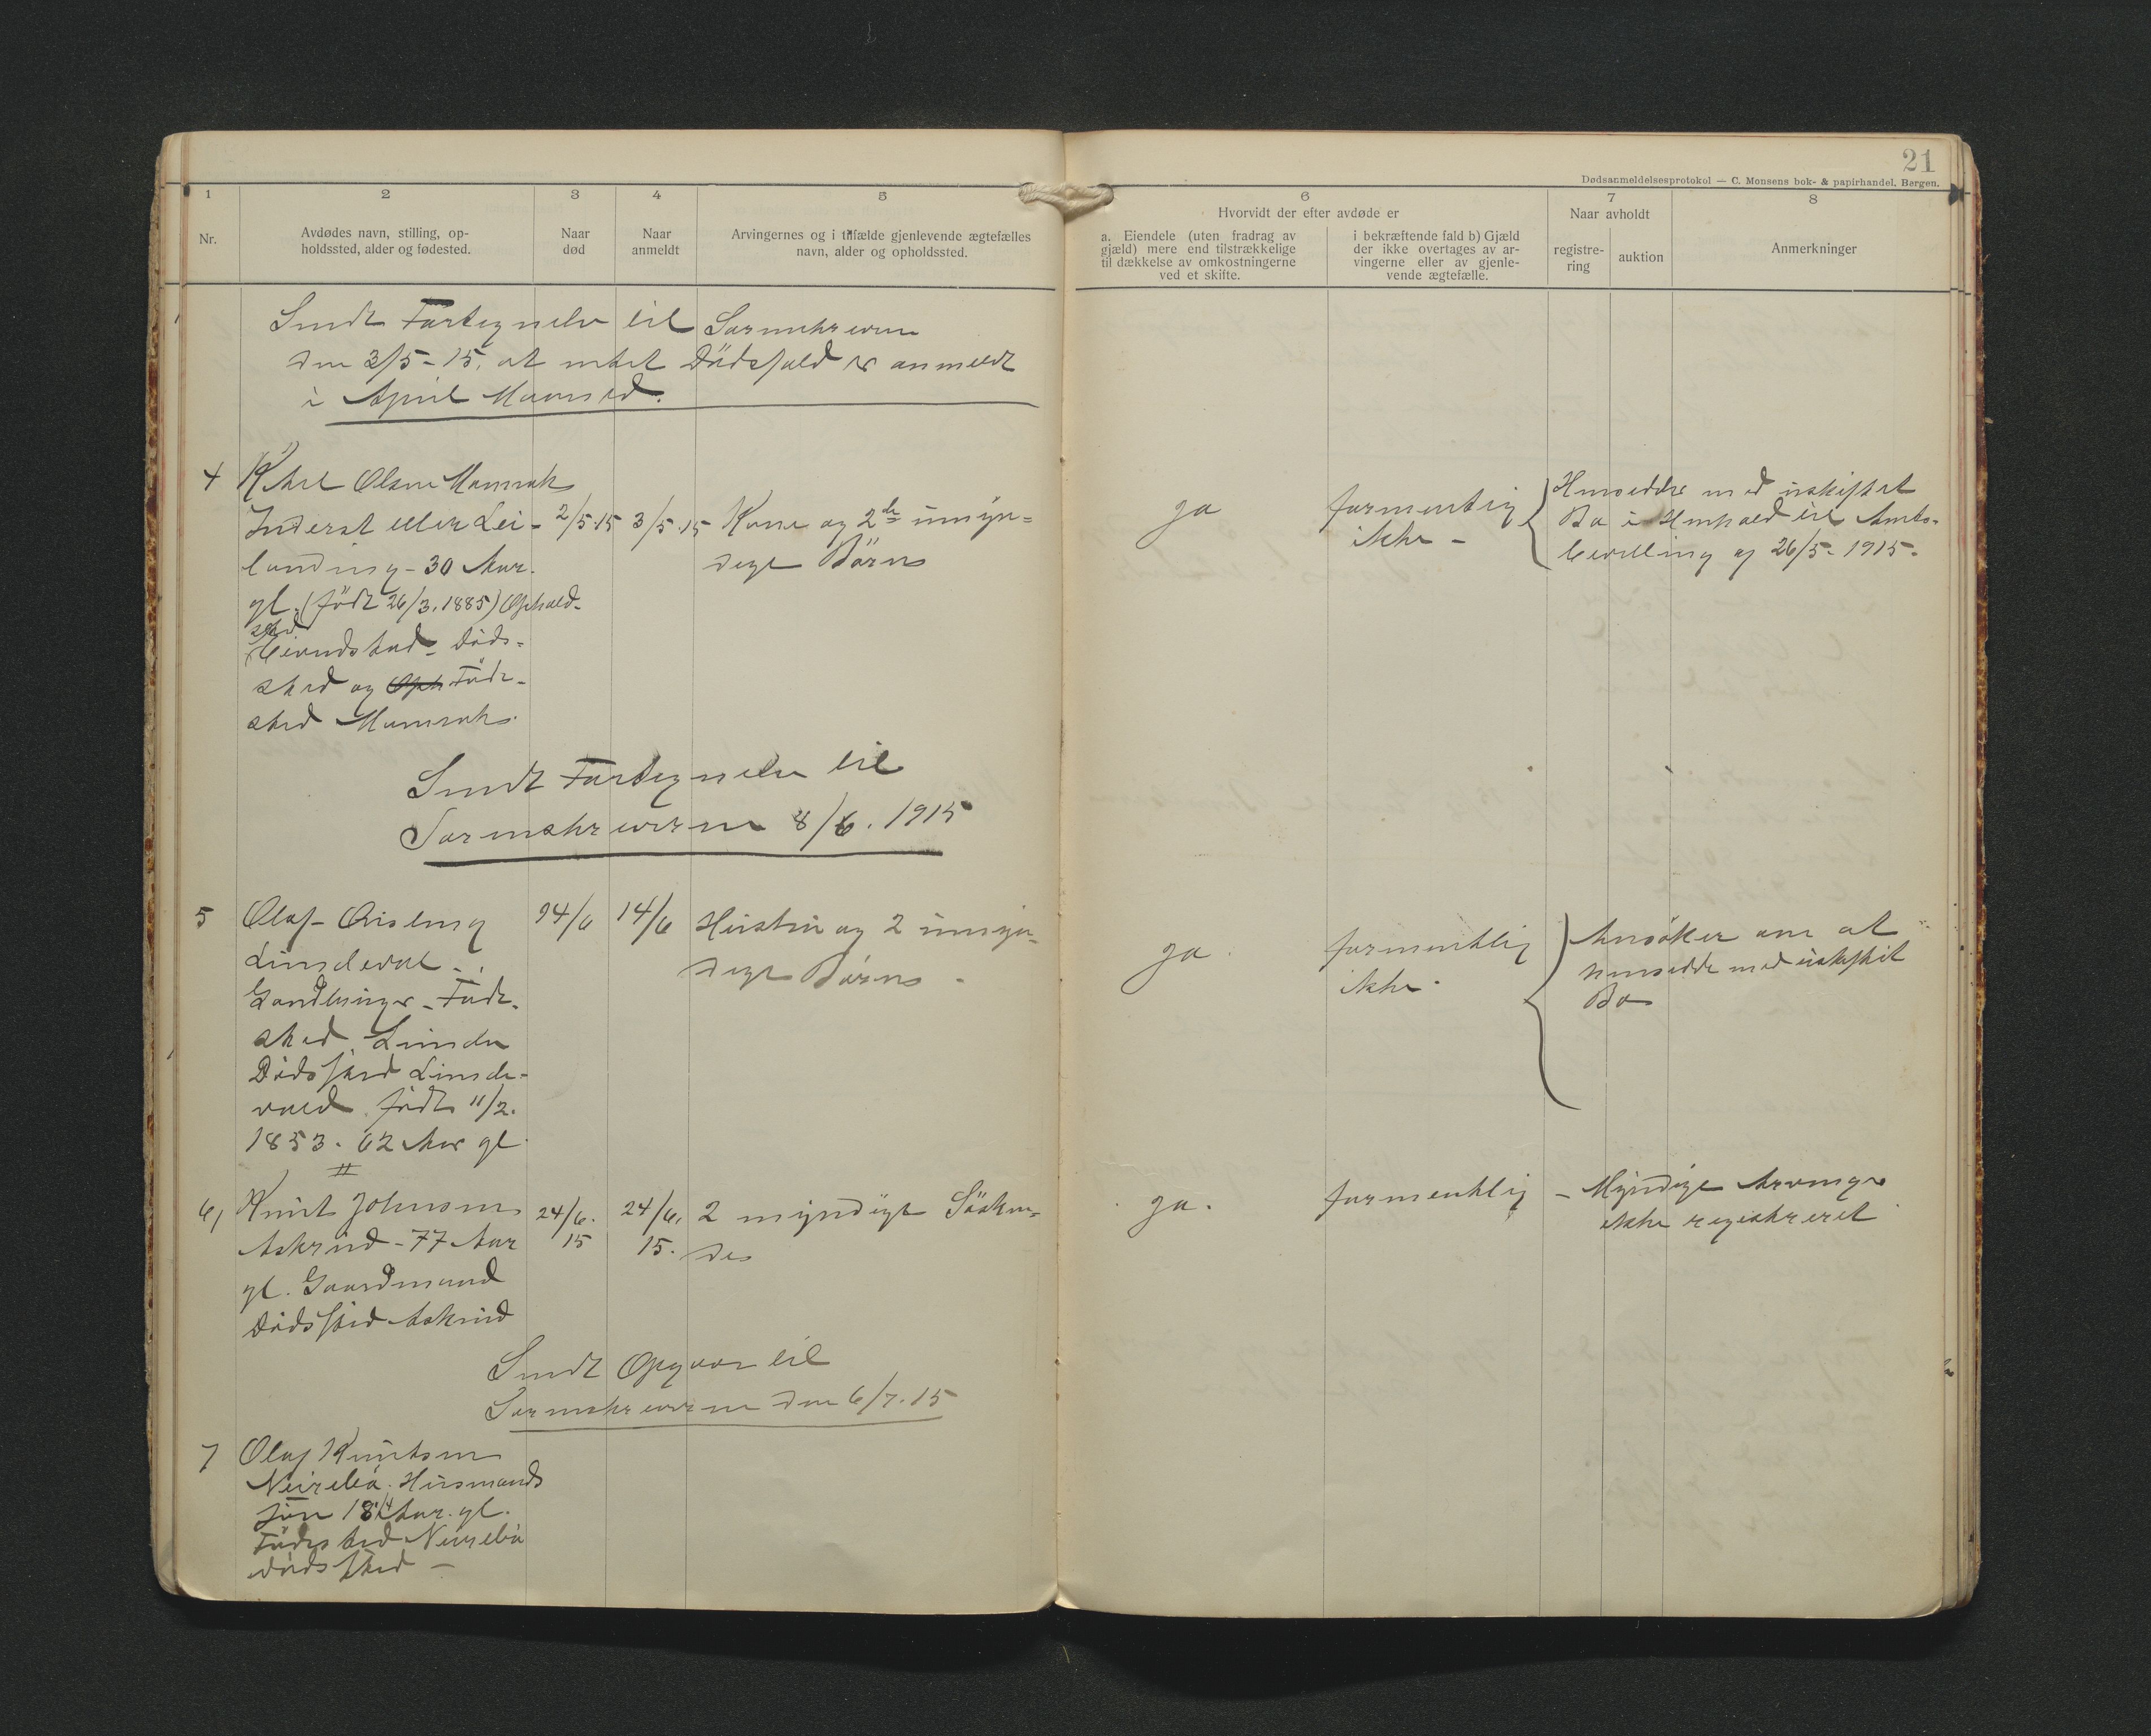 21
Dødsanmeldelsesprotokol — C. Monsens bok- & papirhandel, Bergen.
1
2
3
4
5
6
7
8
Nr.
Avdødes navn, stilling, op-
holdssted, alder og fødested.
Naar
død
Naar
anmeldt
Arvingernes og i tilfælde gjenlevende ægtefælles
navn, alder og opholdssted.
Hvorvidt der efter avdøde er
a. Eiendele (uten fradrag av
gjæld) mere end tilstrækkelige
til dækkelse av omkostningerne
ved et skifte.
i bekræftende fald b) Gjæld
der ikke overtages av ar-
vingerne eller av gjenle-
vende ægtefælle.
Naar avholdt
registre-
ring
auktion
Anmerkninger
Sendt Fortegnelse til Sorenskriveren
den 3/5-15, at intet Dödsfald er anmeldt
i April Maaned.
4
Olsen
Inderst eller Lei-
lending - 30 Aar
gl. (født 26/3. 1885) Ophold-
sted
Döds-
sted og Oph Föde-
sted
2/5.15
3/5.15
Kone og 2de umyn-
dige Börn
ja
formentlig
ikke -
Hensidder med uskiftet
Bo i Henhold til Amts-
bevilling af 26/5-1915.
Sendt Fortegnelse til
Sorenskriveren 8/6. 1915
5
Olaf
Lindeval -
Föde-
sted Linde
Dödssted Linde-
vald født 11/2.
1853. 62 Aar gl.
14/6
14/6
Hustru og 2 umyn-
dige Börn -
ja
formentlig
ikke.
Ansöker om at
hensidde med uskiftet
Bo
6,
Knut Johnsen
Askvind - 77 Aar
gl. Gaardmand
Dödssted Askvind
24/6.
15
24/6.
15.
2 myndige Sösken-
de
ja.
formentlig
- Myndige Arvinger
ikke registreret
Sendt Opgave til
Sorenskriveren den 6/7.15
7
Olaf Knutsen
Husmands
sön Aar gl.
Födested
dödssted —